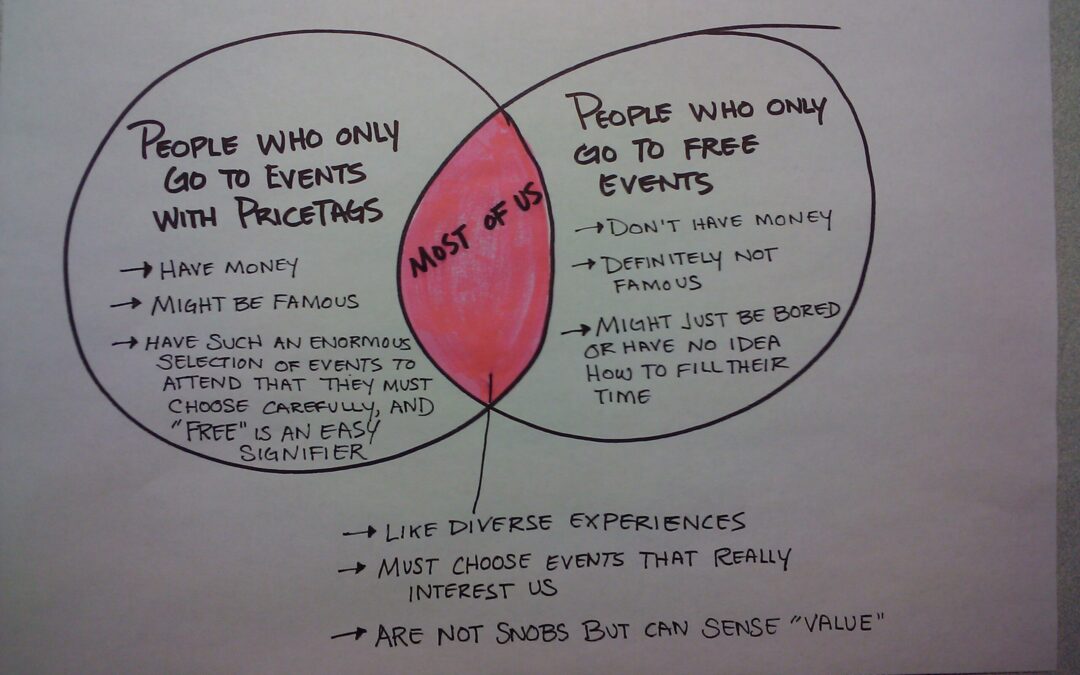 PEOPLE WHO ONLY
GO TO EVENTS
WITH PRICETAGS
→ HAVE MONEY
→ MIGHT BE FAMOUS
→ HAVE SUCH AN ENORMOUS
SELECTION OF EVENTS TO
ATTEND THAT THEY MUST
CHOOSE CAREFULLY, AND
"FREE" IS AN EASY
SIGNIFIER
MOST OF US
PEOPLE WHO ONLY
GO TO FREE
EVENTS
→ DON'T HAVE MONEY
→ DEFINITELY NOT
FAMOUS
→ MIGHT JUST BE BORED
OR HAVE NO IDEA
HOW TO FILL THEIR
TIME
→ LIKE DIVERSE EXPERIENCES
→ MUST CHOOSE EVENTS THAT REALLY
INTEREST US
→ ARE NOT SNOBS BUT CAN SENSE "VALUE"